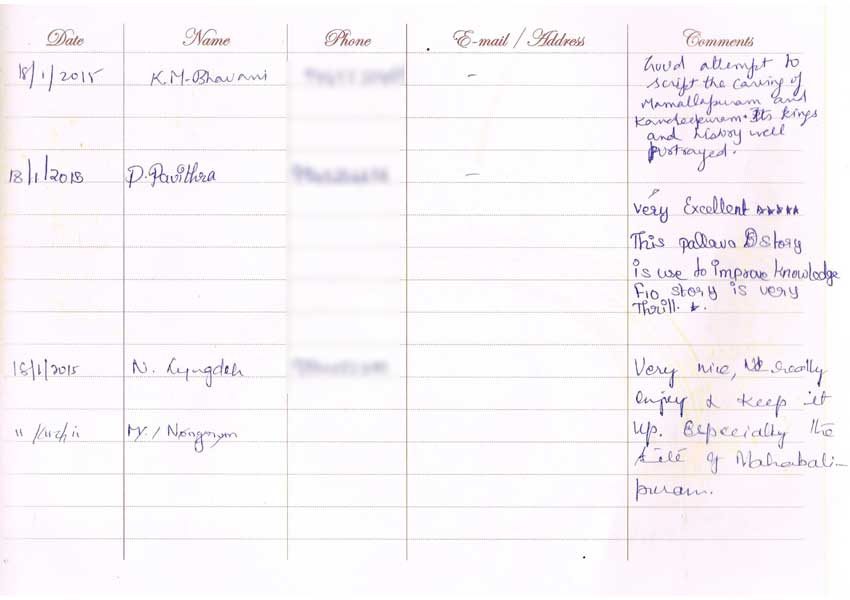 Date Name Phone E-mail / Address Comments
18/1/2015 K.M-Bhavani -
Good attempt to
script the carving of
Mamallapuram and
Kancheepuram. Its kings
and history well
portrayed.
18/1/2015 D.Pavithra -
Very Excellent *****
This pallava story
is use to improve knowledge
story is very
Thrill.
18/1/2015 N.
Very nice, really
enjoy & keep it
up. Especially the
site of Mahabali-
puram.